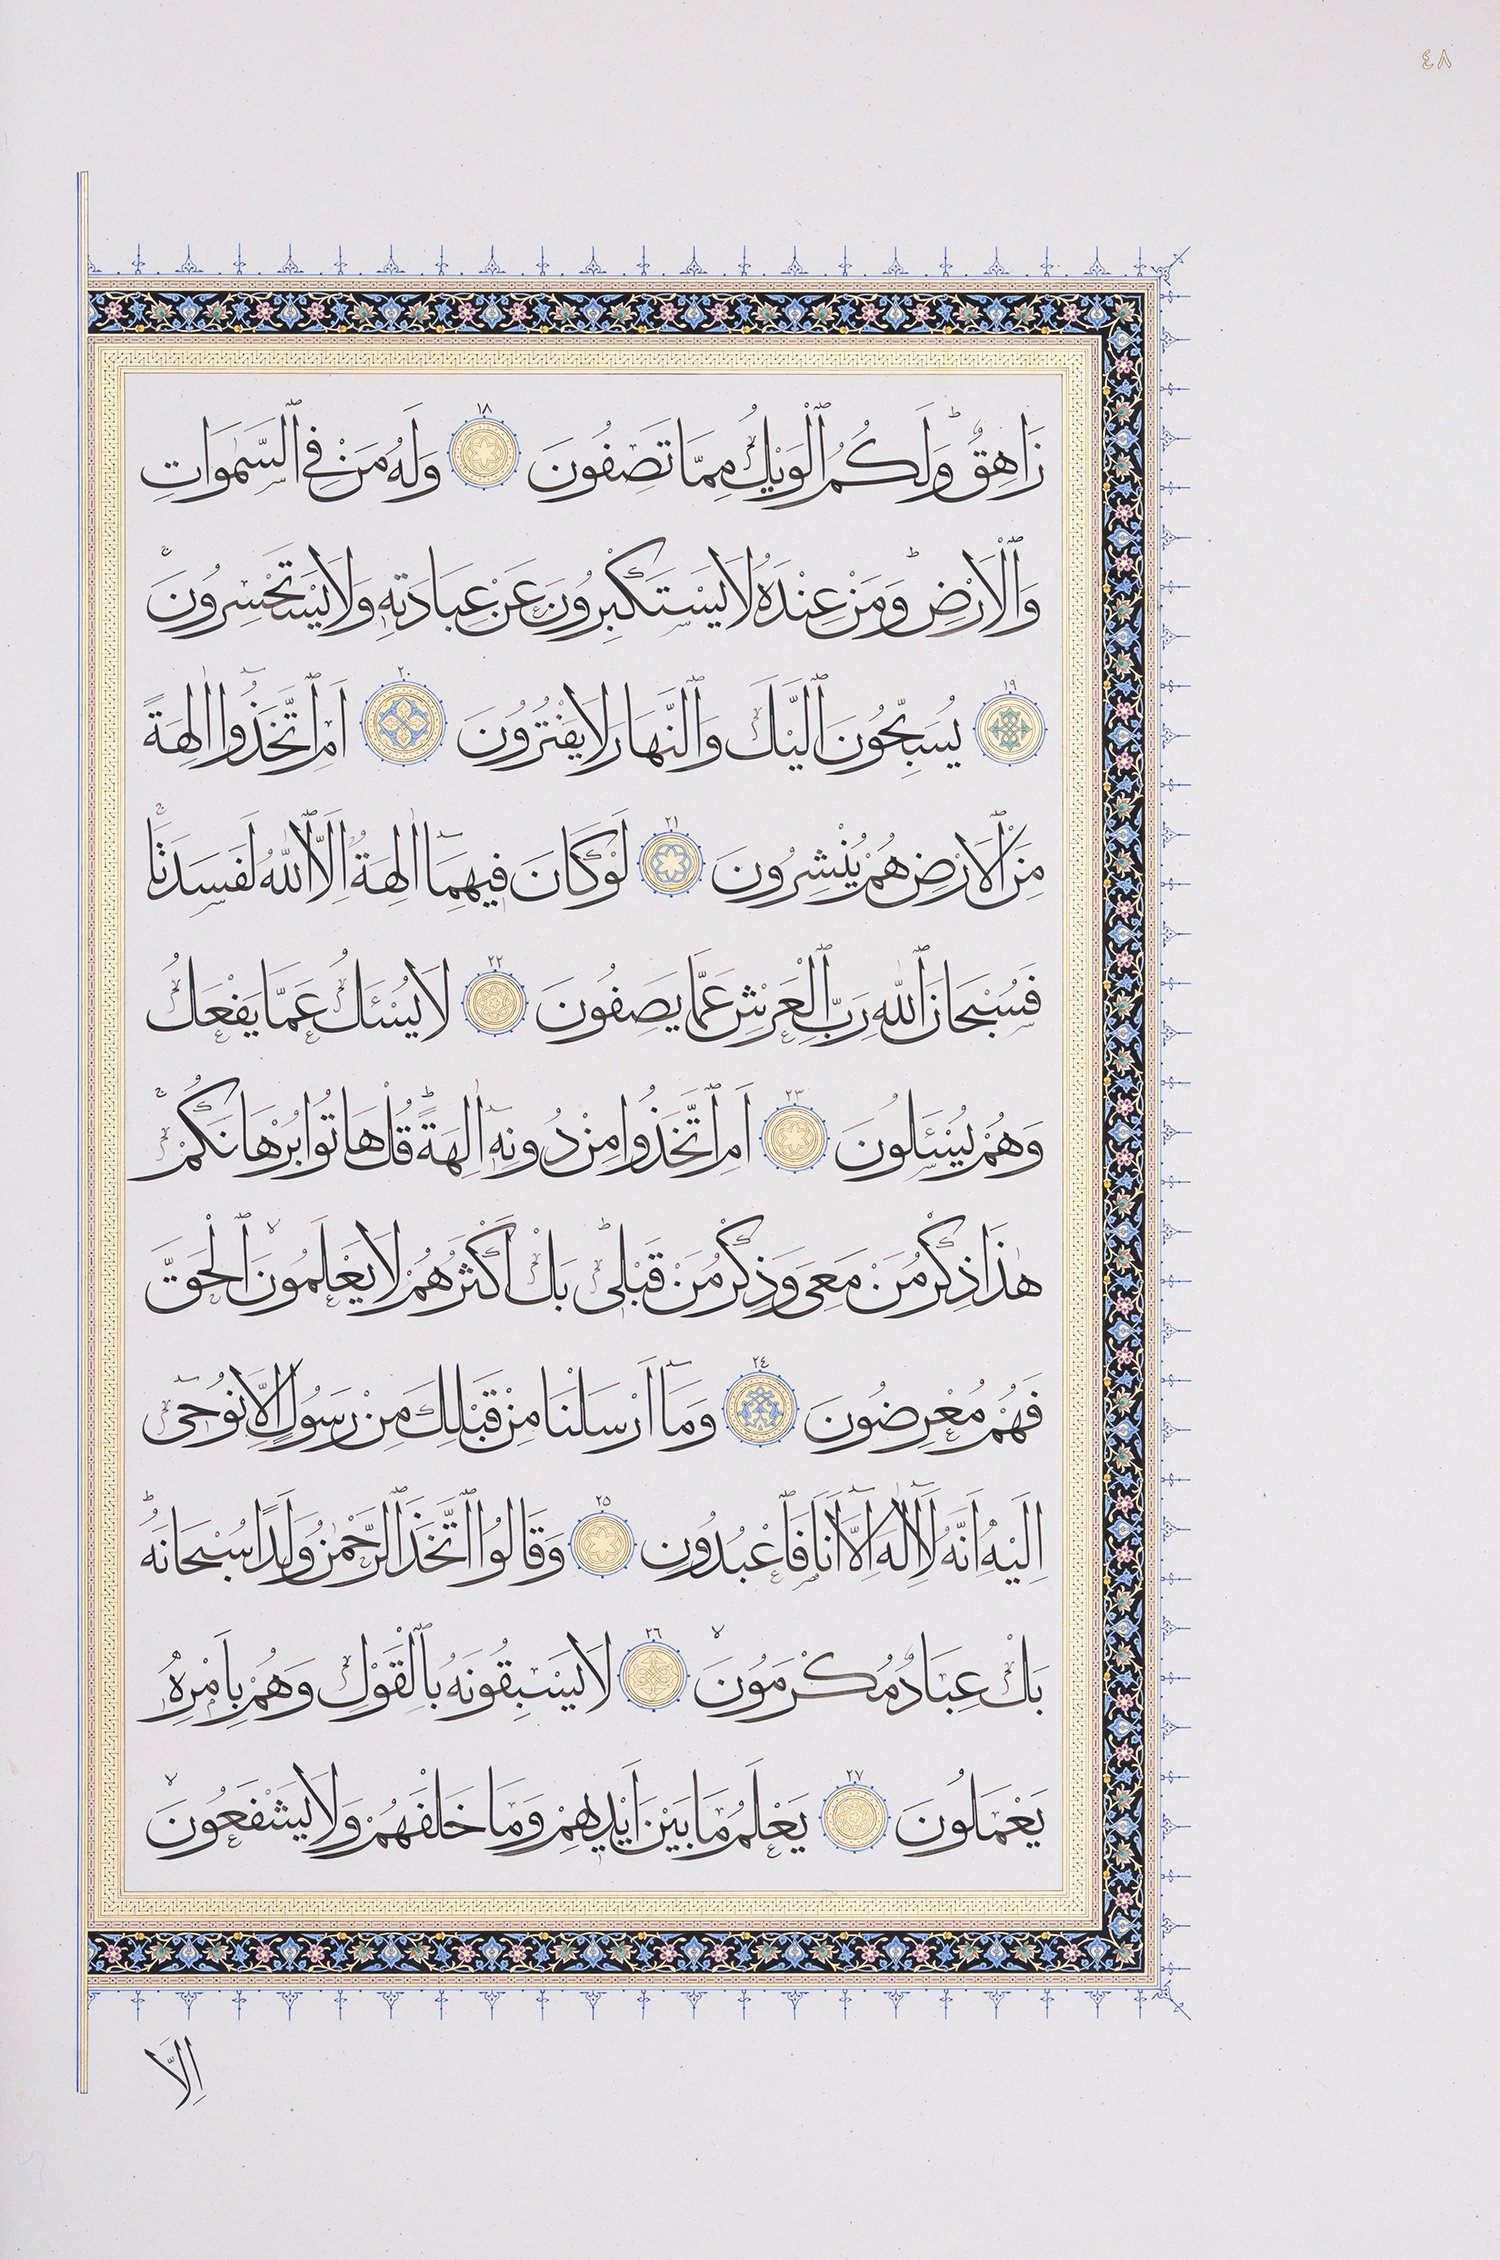 ٤٨
زَاهِقٌ وَلَكُمُ ٱلْوَيْلُ مِمَّا تَصِفُونَ ١٨ وَلَهُ مَنْ فِي ٱلسَّمٰوَاتِ
وَٱلْاَرْضِ وَمَنْ عِنْدَهُ لَا يَسْتَكْبِرُونَ عَنْ عِبَادَتِهِ وَلَا يَسْتَحْسِرُونَ
١٩ يُسَبِّحُونَ ٱلَّيْلَ وَٱلنَّهَارَ لَا يَفْتُرُونَ ٢٠ اَمِ ٱتَّخَذُٓوا اٰلِهَةً
مِنَ ٱلْاَرْضِ هُمْ يُنْشِرُونَ ٢١ لَوْ كَانَ فِيهِمَٓا اٰلِهَةٌ اِلَّا ٱللّٰهُ لَفَسَدَتَا
فَسُبْحَانَ ٱللّٰهِ رَبِّ ٱلْعَرْشِ عَمَّا يَصِفُونَ ٢٢ لَا يُسْـَٔلُ عَمَّا يَفْعَلُ
وَهُمْ يُسْـَٔلُونَ ٢٣ اَمِ ٱتَّخَذُوا مِنْ دُونِهِٓ اٰلِهَةً قُلْ هَاتُوا بُرْهَانَكُمْ
هٰذَا ذِكْرُ مَنْ مَعِيَ وَذِكْرُ مَنْ قَبْلِي بَلْ اَكْثَرُهُمْ لَا يَعْلَمُونَ ٱلْحَقَّ
فَهُمْ مُعْرِضُونَ ٢٤ وَمَٓا اَرْسَلْنَا مِنْ قَبْلِكَ مِنْ رَسُولٍ اِلَّا نُوحِٓي
اِلَيْهِ اَنَّهُ لَٓا اِلٰهَ اِلَّٓا اَنَا فَٱعْبُدُونِ ٢٥ وَقَالُوا ٱتَّخَذَ ٱلرَّحْمٰنُ وَلَدًا سُبْحَانَهُ
بَلْ عِبَادٌ مُكْرَمُونَ ٢٦ لَا يَسْبِقُونَهُ بِٱلْقَوْلِ وَهُمْ بِاَمْرِهِ
يَعْمَلُونَ ٢٧ يَعْلَمُ مَا بَيْنَ اَيْدِيهِمْ وَمَا خَلْفَهُمْ وَلَا يَشْفَعُونَ
اِلَّا